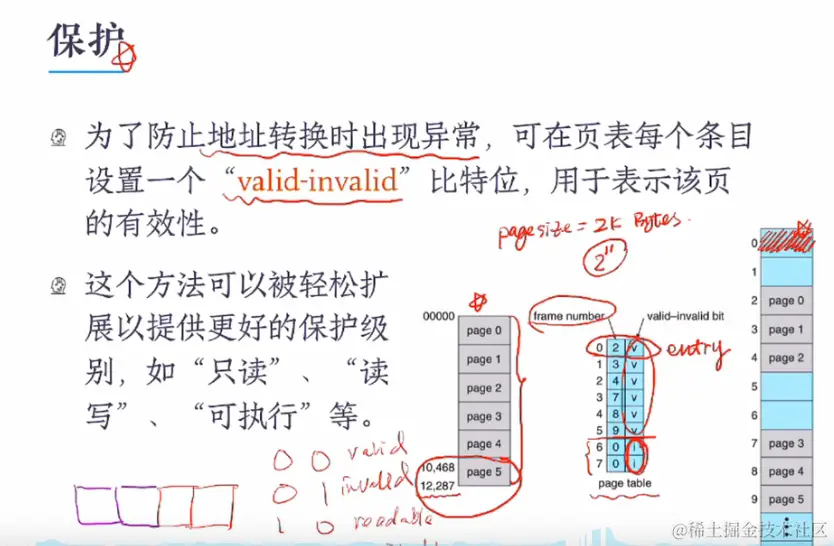 保护
为了防止地址转换时出现异常，可在页表每个条目
设置一个“valid-invalid”比特位，用于表示该页
的有效性。
page size = 2K Bytes.
2^11
这个方法可以被轻松扩
展以提供更好的保护级
别，如“只读”、“读
写”、“可执行”等。
00000
page 0
page 1
page 2
page 3
page 4
page 5
10,468
12,287
frame number
valid–invalid bit
0 2 v
entry
1 3 v
2 4 v
3 7 v
4 8 v
5 9 v
6 0 i
7 0 i
page table
0
1
2 page 0
3 page 1
4 page 2
5
6
7 page 3
8 page 4
9 page 5
0 0 valid
0 1 invalid
1 0 readable
@稀土掘金技术社区